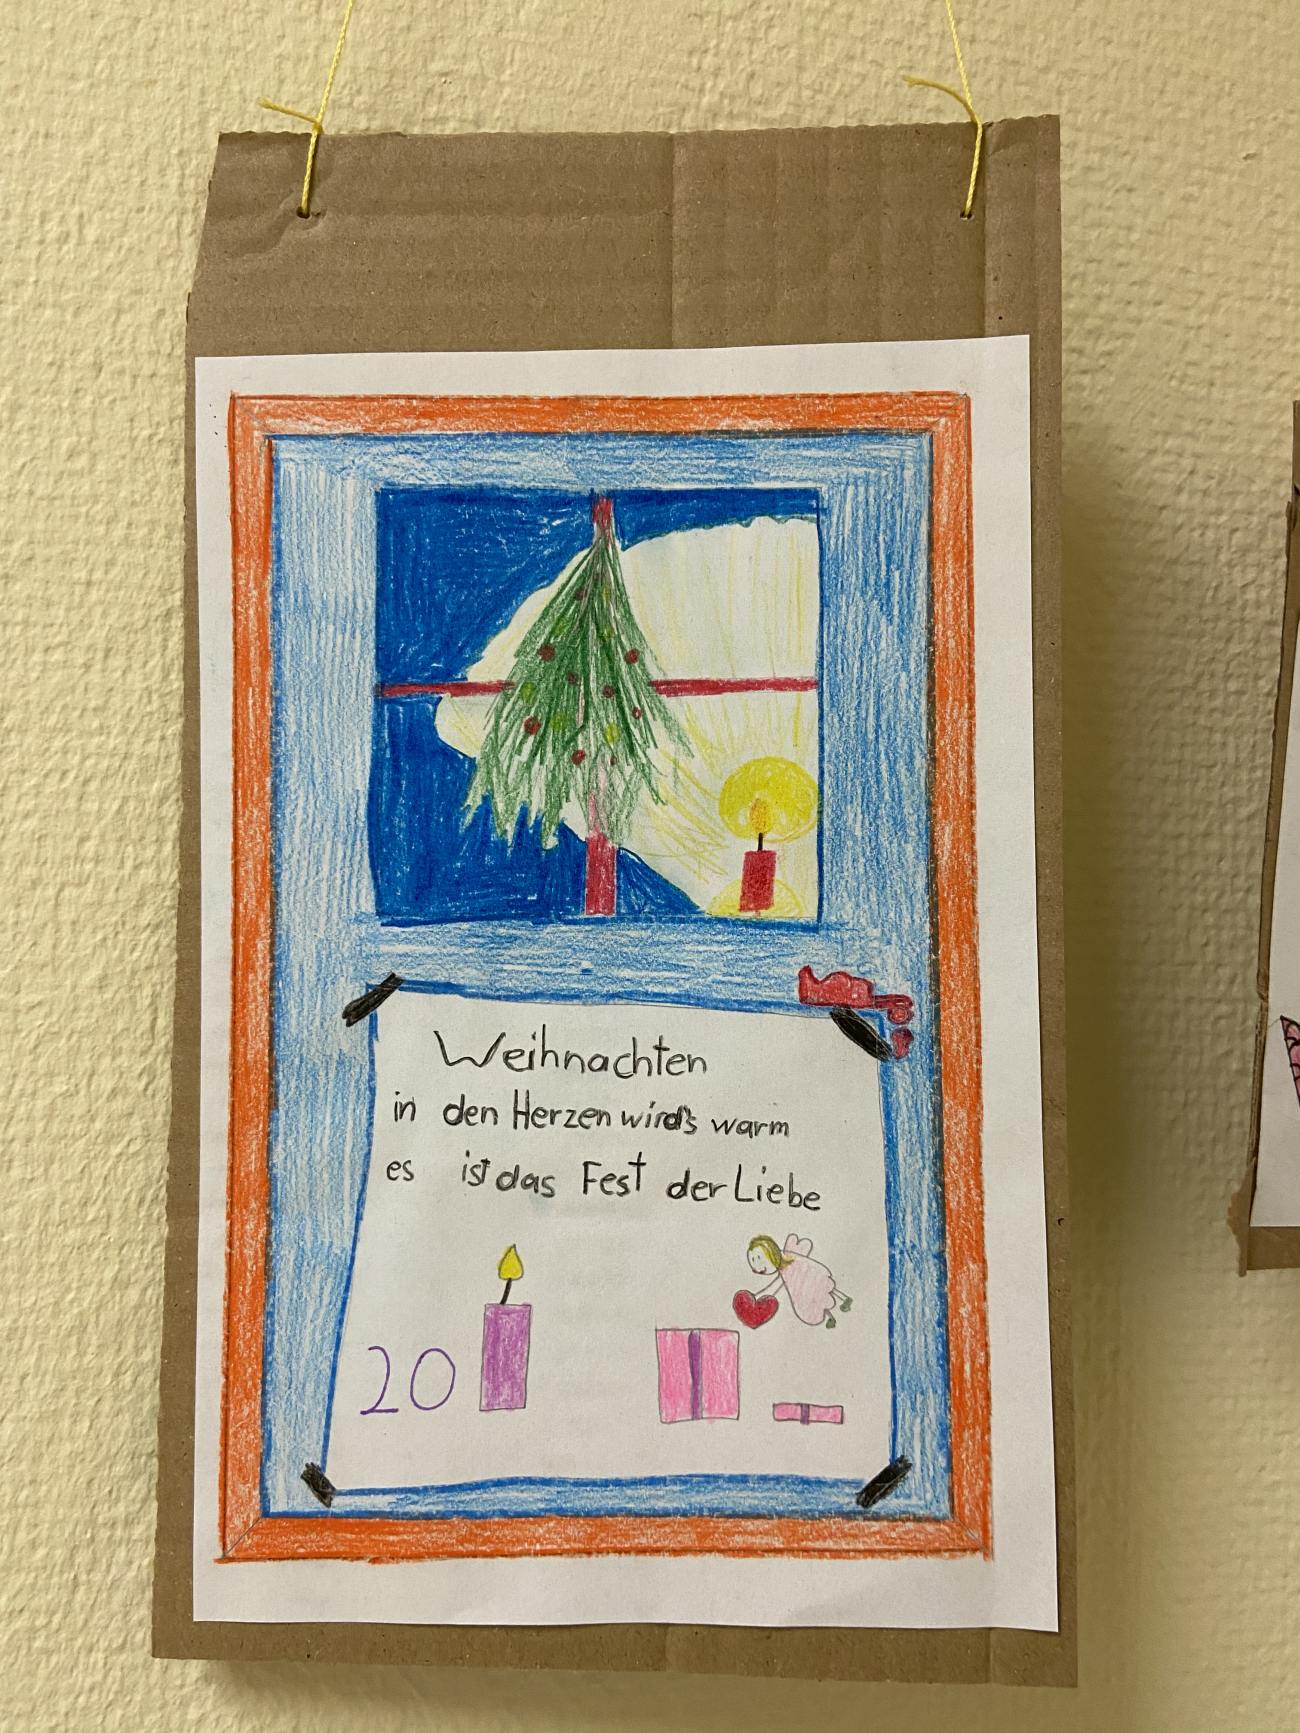 Weihnachten
in den Herzen wird's warm
es ist das Fest der Liebe
20